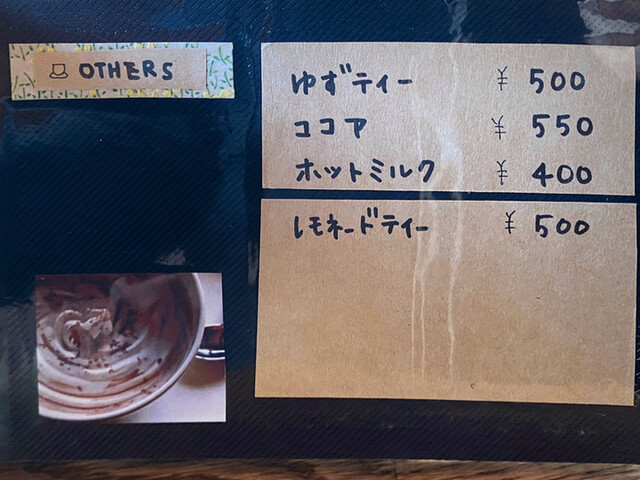 OTHERS
ゆずティー ¥ 500
ココア ¥ 550
ホットミルク ¥ 400
レモネードティー ¥ 500